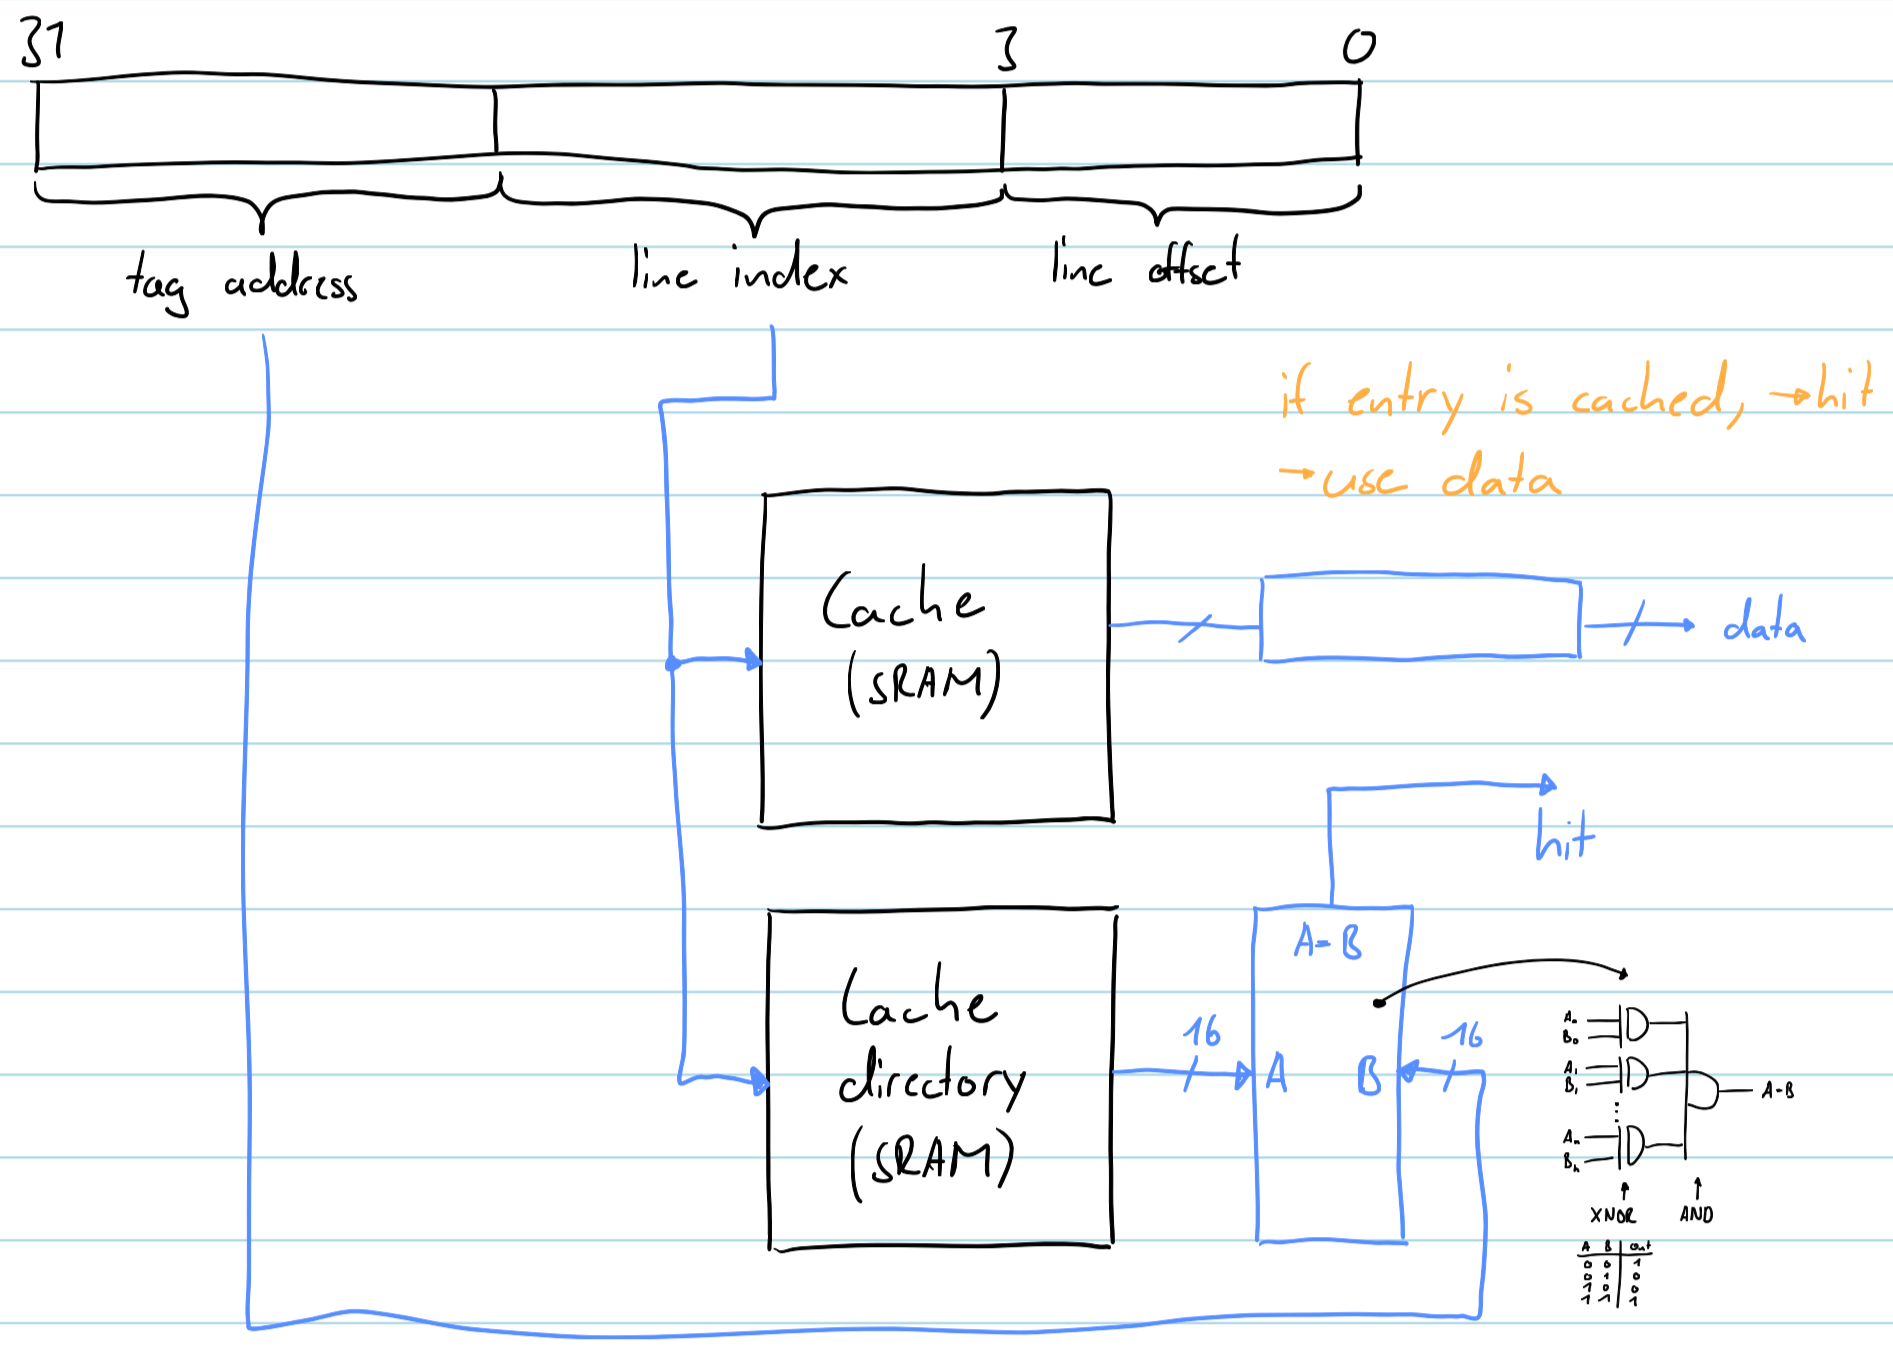 31 3 0
tag address line index line offset
if entry is cached, →hit
→use data
Cache
(SRAM)
data
hit
A=B
Cache
directory
(SRAM)
16
A
B
16
A₀
B₀
A₁
B₁
⋮
Aₙ
Bₙ
A=B
XNOR AND
A B out
0 0 1
0 1 0
1 0 0
1 1 1